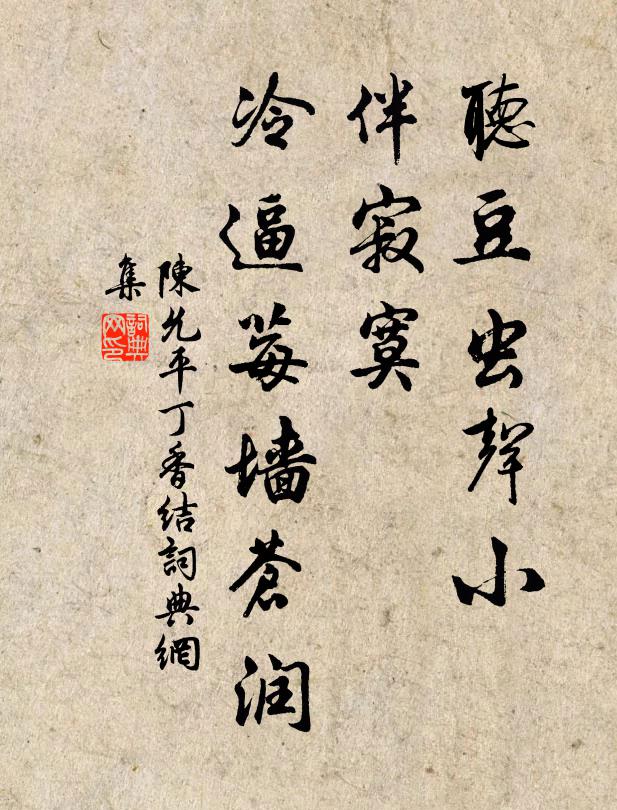 聽豆虫聲小
伴寂寞
冷逼莓墻蒼润
陳允平丁香结詞典網
集
詞典
网印